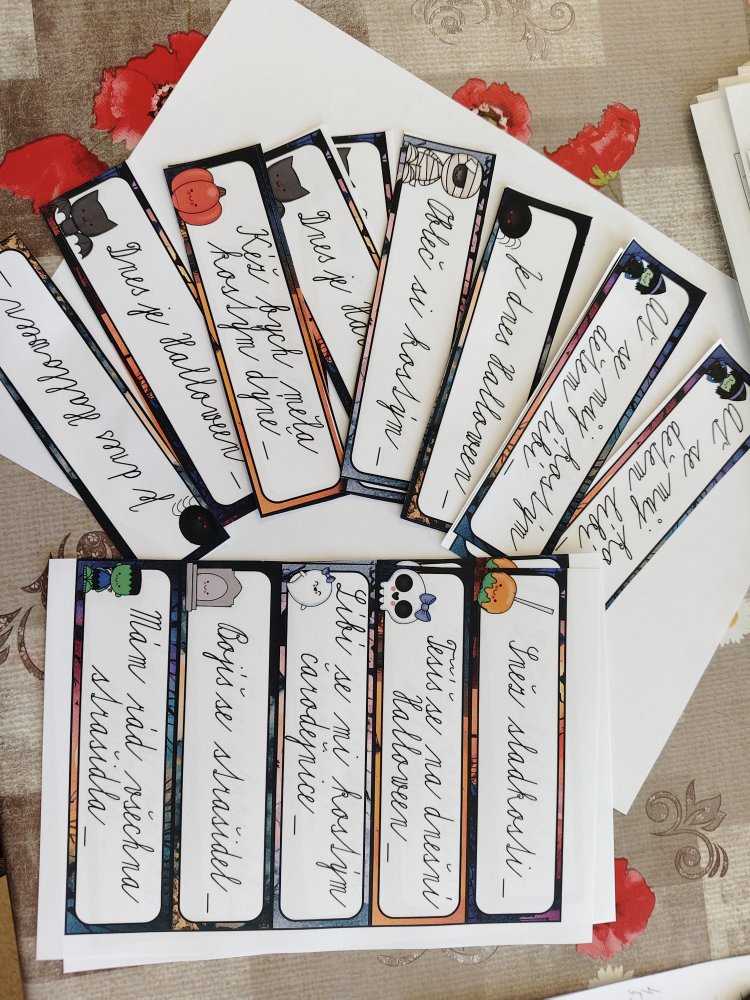 Je dnes Halloween _
Dnes je Halloween _
Kéž bych měla
kostým dýně _
Dnes je Hal
Obleč si kostým _
Je dnes Halloween _
Ať se můj kostým
dětem líbí _
Ať se můj ko
dětem líbí _
Mám rád všechna
strašidla _
Bojíš se strašidel _
Líbí se mi kostým
čarodějnice _
Těšíš se na dnešní
Halloween _
Sněz sladkosti _